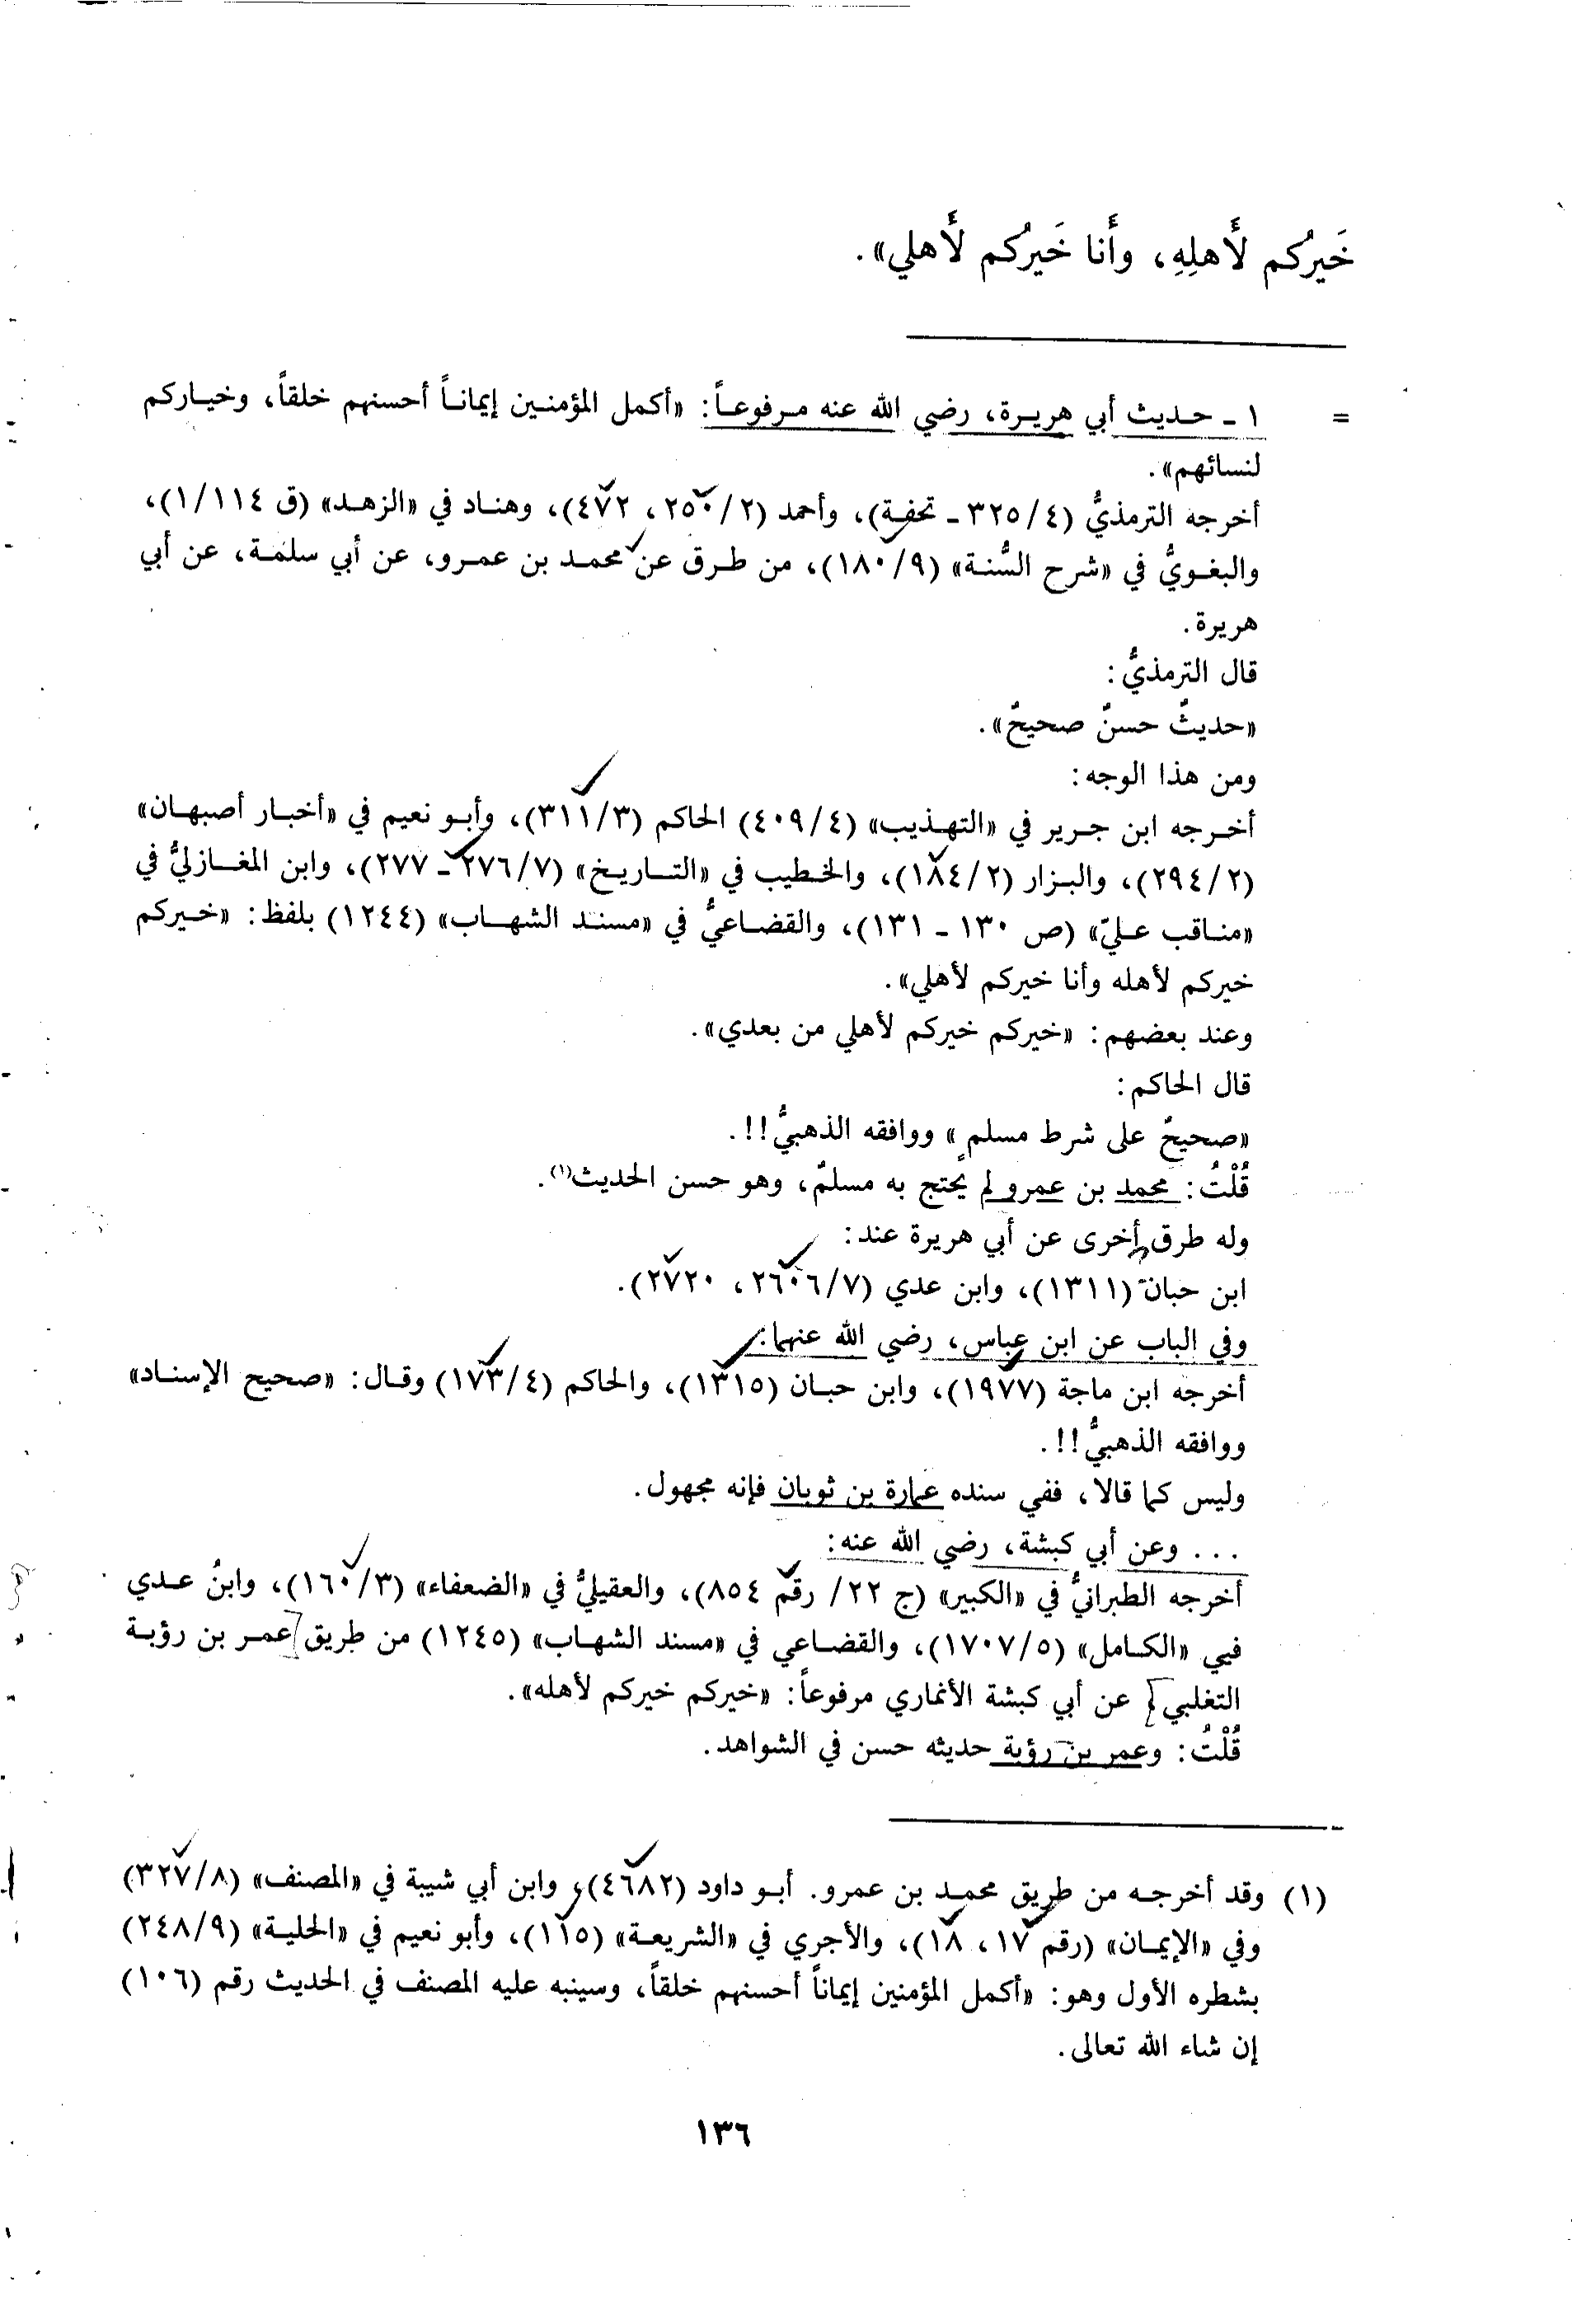 خَيرُكم لأَهلِهِ، وأَنا خَيرُكم لأَهلي».
= ١ ـ حديث أبي هريرة، رضي الله عنه مرفوعاً: «أكمل المؤمنين إيماناً أحسنهم خلقاً، وخياركم
لنسائهم».
أخرجه الترمذيُّ (٣٢٥/٤ ـ تحفة)، وأحمد (٢٥٠/٢، ٤٧٢)، وهناد في «الزهد» (ق ١/١١٤)،
والبغويُّ في «شرح السُّنة» (١٨٠/٩)، من طرق عن محمد بن عمرو، عن أبي سلمة، عن أبي
هريرة.
قال الترمذيُّ:
«حديثٌ حسنٌ صحيحٌ».
ومن هذا الوجه:
أخرجه ابن جرير في «التهذيب» (٤٠٩/٤) الحاكم (٣١١/٣)، وأبو نعيم في «أخبار أصبهان»
(٢٩٤/٢)، والبزار (١٨٤/٢)، والخطيب في «التاريخ» (٢٧٦/٧ ـ ٢٧٧)، وابن المغازليُّ في
«مناقب عليّ» (ص ١٣٠ ـ ١٣١)، والقضاعيُّ في «مسند الشهاب» (١٢٤٤) بلفظ: «خيركم
خيركم لأهله وأنا خيركم لأهلي».
وعند بعضهم: «خيركم خيركم لأهلي من بعدي».
قال الحاكم:
«صحيحٌ على شرط مسلمٍ» ووافقه الذهبيُّ!!.
قُلْتُ: محمد بن عمرو لم يحتج به مسلمٌ، وهو حسن الحديث(١).
وله طرق أخرى عن أبي هريرة عند:
ابن حبان (١٣١١)، وابن عدي (٢٦٠٦/٧، ٢٧٢٠).
وفي الباب عن ابن عباس، رضي الله عنهما:
أخرجه ابن ماجة (١٩٧٧)، وابن حبان (١٣١٥)، والحاكم (١٧٣/٤) وقال: «صحيح الإسناد»
ووافقه الذهبيُّ!!.
وليس كما قالا، ففي سنده عمارة بن ثوبان فإنه مجهول.
... وعن أبي كبشة، رضي الله عنه:
أخرجه الطبرانيُّ في «الكبير» (ج ٢٢/ رقم ٨٥٤)، والعقيليُّ في «الضعفاء» (١٦٠/٣)، وابنُ عدي
فيي «الكامل» (١٧٠٧/٥)، والقضاعي في «مسند الشهاب» (١٢٤٥) من طريق عمر بن رؤبة
التغلبي عن أبي كبشة الأنماري مرفوعاً: «خيركم خيركم لأهله».
قُلْتُ: وعمر بن رؤبة حديثه حسن في الشواهد.
(١) وقد أخرجه من طريق محمد بن عمرو. أبو داود (٤٦٨٢)، وابن أبي شيبة في «المصنف» (٣٢٧/٨)
وفي «الإيمان» (رقم ١٧، ١٨)، والأجري في «الشريعة» (١١٥)، وأبو نعيم في «الحلية» (٢٤٨/٩)
بشطره الأول وهو: «أكمل المؤمنين إيماناً أحسنهم خلقاً، وسينبه عليه المصنف في الحديث رقم (١٠٦)
إن شاء الله تعالى.
١٣٦